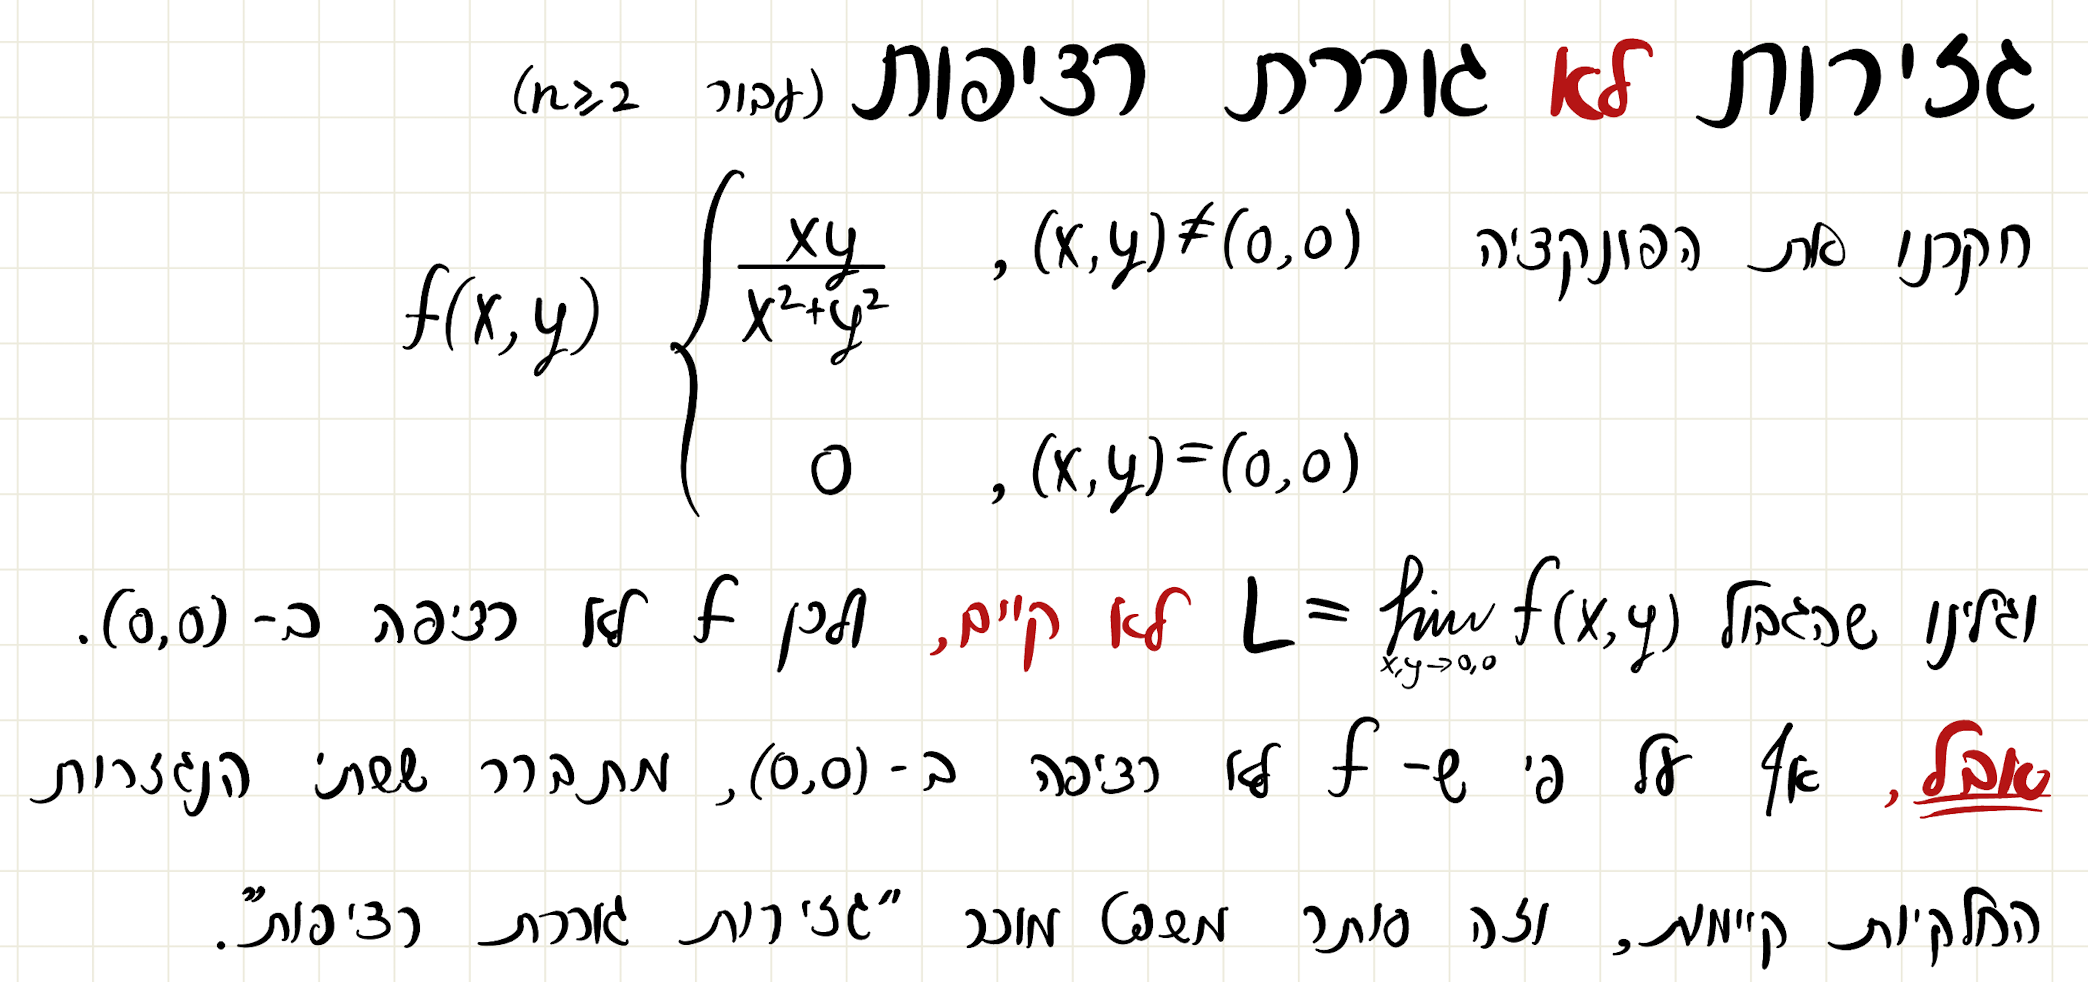 גזירות לא גוררת רציפות (עבור n≥2)
חקרנו את הפונקציה f(x,y) { xy/(x²+y²) , (x,y)≠(0,0)
0 , (x,y)=(0,0)
וגילינו שהגבול L = lim x,y→0,0 f(x,y) לא קיים, ולכן f לא רציפה ב-(0,0).
אבל, אף על פי ש-f לא רציפה ב-(0,0), מתברר ששתי הנגזרות
החלקיות קיימות, וזה סותר משפט מוכר "גזירות גוררת רציפות".